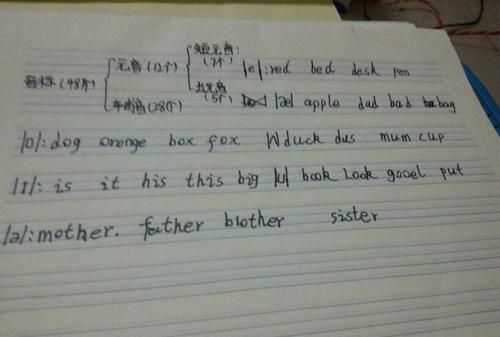 音标(48个) 元音(12个) 短元音:(7个) /e/:red bed desk pen
辅音(28个) 长元音(5个) /æ/ apple dad bad bag
/ɒ/:dog orenge box fox /ʌ/ duck dus mum cup
/ɪ/: is it his this big /ʊ/ book Look good put
/ə/:mother. father brother sister